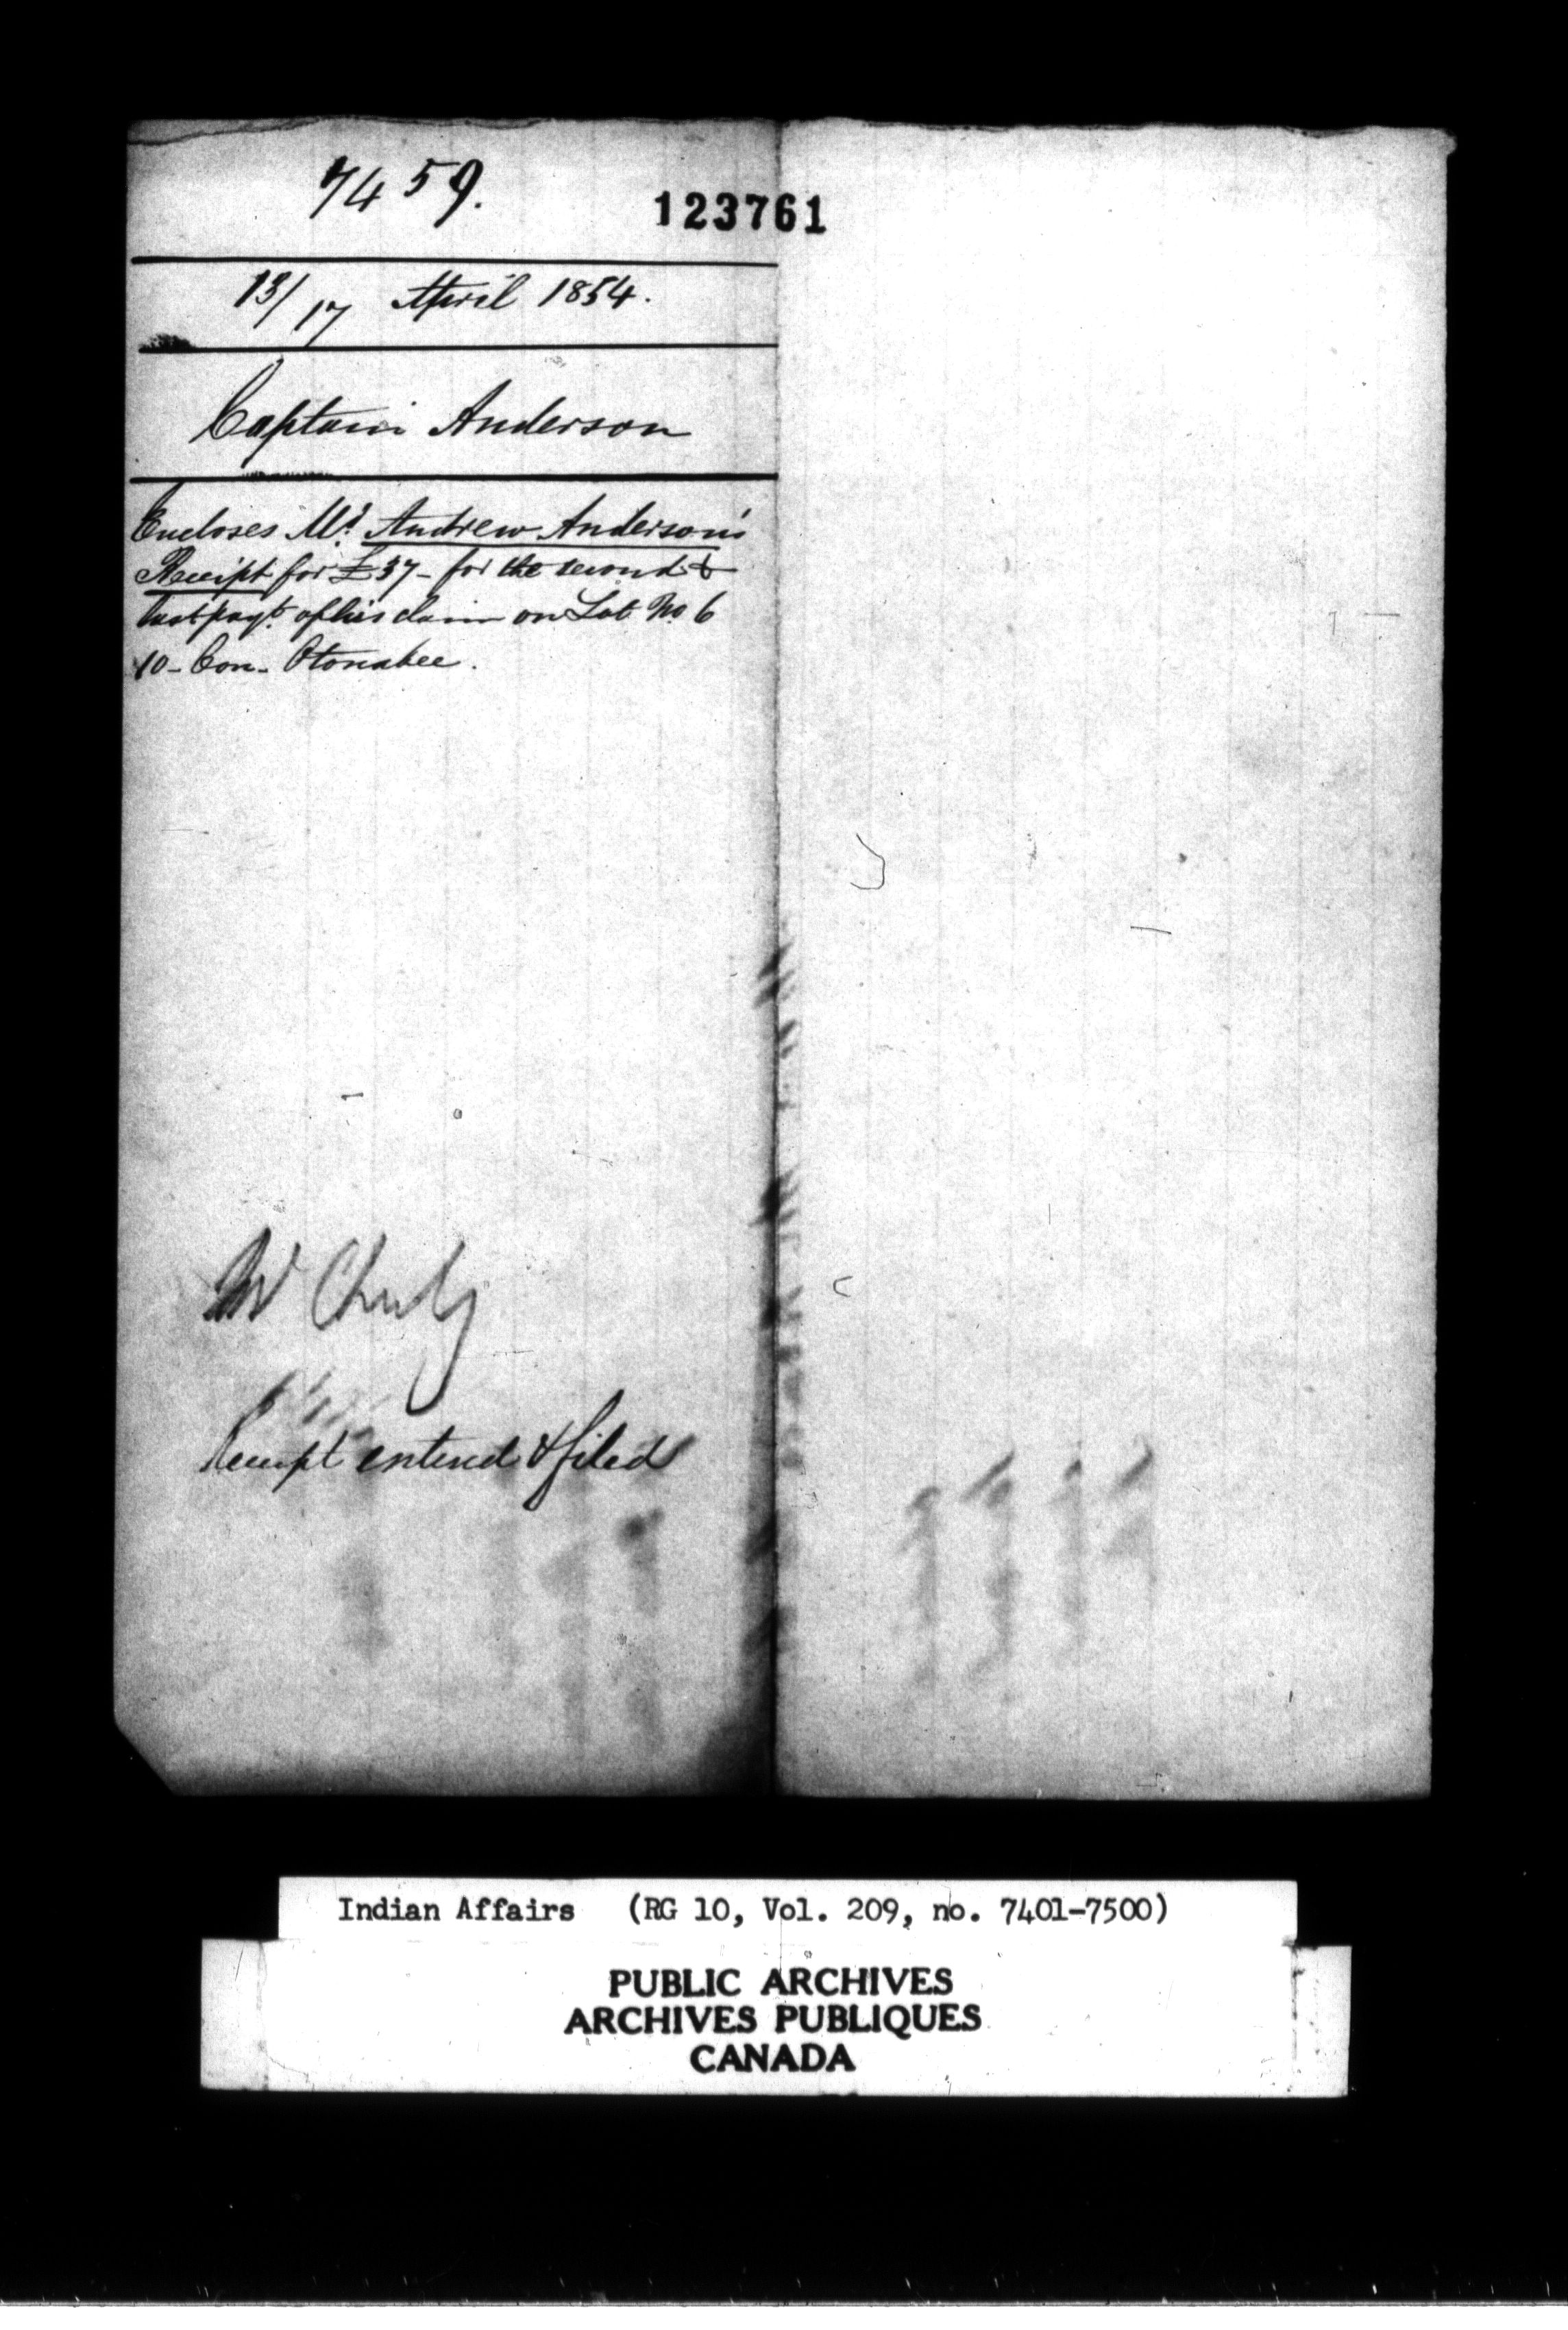 7459.
123761
13/17 April 1854.
Captain Anderson
Encloses Mr. Andrew Anderson's
Receipt for £37 - for the second &
last payt. of his claim on Lot No. 6
10 - Con - Otonabee.
Mr
Receipt entered & filed
Indian Affairs (RG 10, Vol. 209, no. 7401-7500)
PUBLIC ARCHIVES
ARCHIVES PUBLIQUES
CANADA